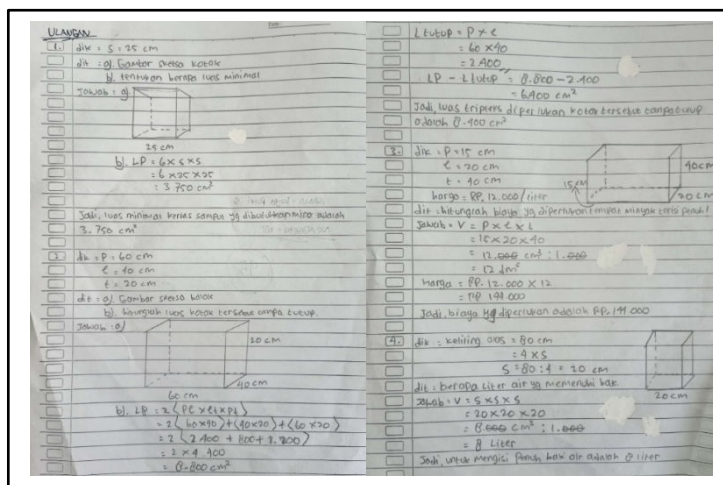 ULANGAN
1. dik = s = 25 cm
dit = a) Gambar sketsa kotak
b). tentukan berapa luas minimal
Jawab = a)
25 cm
b). LP = 6 x s x s
= 6 x 25 x 25
= 3 750 cm²
Jadi, luas minimal kertas sampul yg dibutuhkan adalah
3.750 cm²
2. dik = P = 60 cm
l = 40 cm
t = 20 cm
dit = a) Gambar sketsa kotak
b). hitunglah luas kotak tersebut tanpa tutup.
Jawab = a)
20 cm
40 cm
60 cm
b). LP = 2 (Pl x lt x pt)
= 2 (60x40) + (40x20) + (60 x 20)
= 2 (2.400 + 800 + 1.200)
= 2 x 4.400
= 8.800 cm²
L tutup = P x l
= 60 x 40
= 2.400
LP - L tutup = 8.800 - 2.400
= 6.400 cm²
Jadi, luas tripleks diperlukan kotak tersebut tanpa tutup
adalah 6.400 cm²
3. dik = P = 15 cm
l = 20 cm
t = 40 cm
harga = RP. 12.000 / liter
40 cm
15 cm
20 cm
dit = hitunglah biaya yg diperlukan tempat minyak terisi penuh!
Jawab = V = P x l x t
= 15 x 20 x 40
= 12.000 cm³ : 1.000
= 12 dm³
Harga = RP. 12.000 x 12
= RP 144.000
Jadi, biaya yg diperlukan adalah RP. 144.000
4. dik = keliling alas = 80 cm
= 4 x s
s = 80 : 4 = 20 cm
dit = berapa liter air yg memenuhi bak
20 cm
Jawab = V = s x s x s
= 20 x 20 x 20
= 8.000 cm³ : 1.000
= 8 Liter
Jadi, untuk mengisi penuh bak air adalah 8 liter